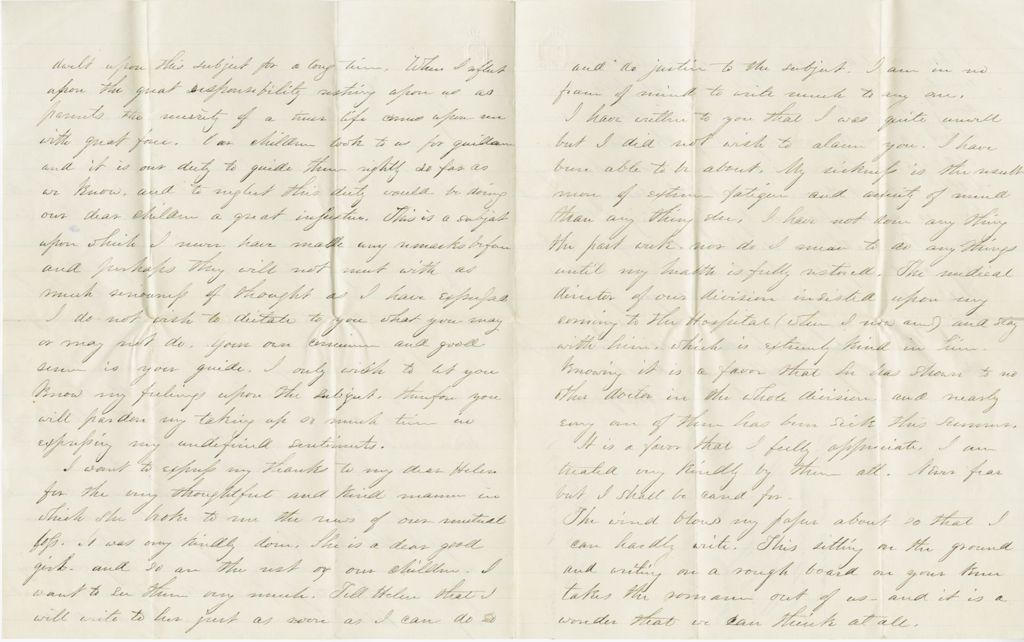 dwelt upon this subject for a long time. When I reflect
upon the great responsibility resting upon us as
parents the necessity of a true life comes upon me
with great force. Our children look to us for guidance
and it is our duty to guide them rightly so far as
we know, and to neglect this duty would be doing
our dear children a great injustice. This is a subject
upon which I never have made any remarks before
and perhaps they will not meet with as
much of thought as I have expressed
I do not wish to dictate to you what you may
or may not do. your own and good
sense is your guide. I only wish to let you
know my feelings upon the subject. therefore you
will pardon my taking up so much time in
expressing my undefined sentiments.
I want to express my thanks to my dear Helen
for the very thoughtful and kind manner in
which she broke to me the news of our mutual
loss. it was very kindly done. She is a dear good
girl. and so are the rest of our children. I
want to see them very much. Tell Helen that I
will write to her just as soon as I can do so
and do justice to the subject. I am in no
frame of mind to write much to any one.
I have written to you that I was quite unwell
but I did not wish to alarm you. I have
been able to be about. My sickness is the result
more of extreme fatigue and anxiety of mind
than any thing else. I have not done any thing
the past week nor do I mean to do any things
until my health is fully restored. The medical
director of our division insisted upon my
coming to the Hospital (where I now am) and stay
with him. which is extremely kind in him.
Knowing it is a favor that he has shown to no
other doctor in the whole division and nearly
every one of them has been sick this summer.
It is a favor that I fully appreciate. I am
treated very kindly by them all. Never fear
but I shall be cared for.
The wind blows my paper about so that I
can hardly write. This sitting on the ground
and writing on a rough board on your knee
takes the romance out of us and it is a
wonder that we can think at all.